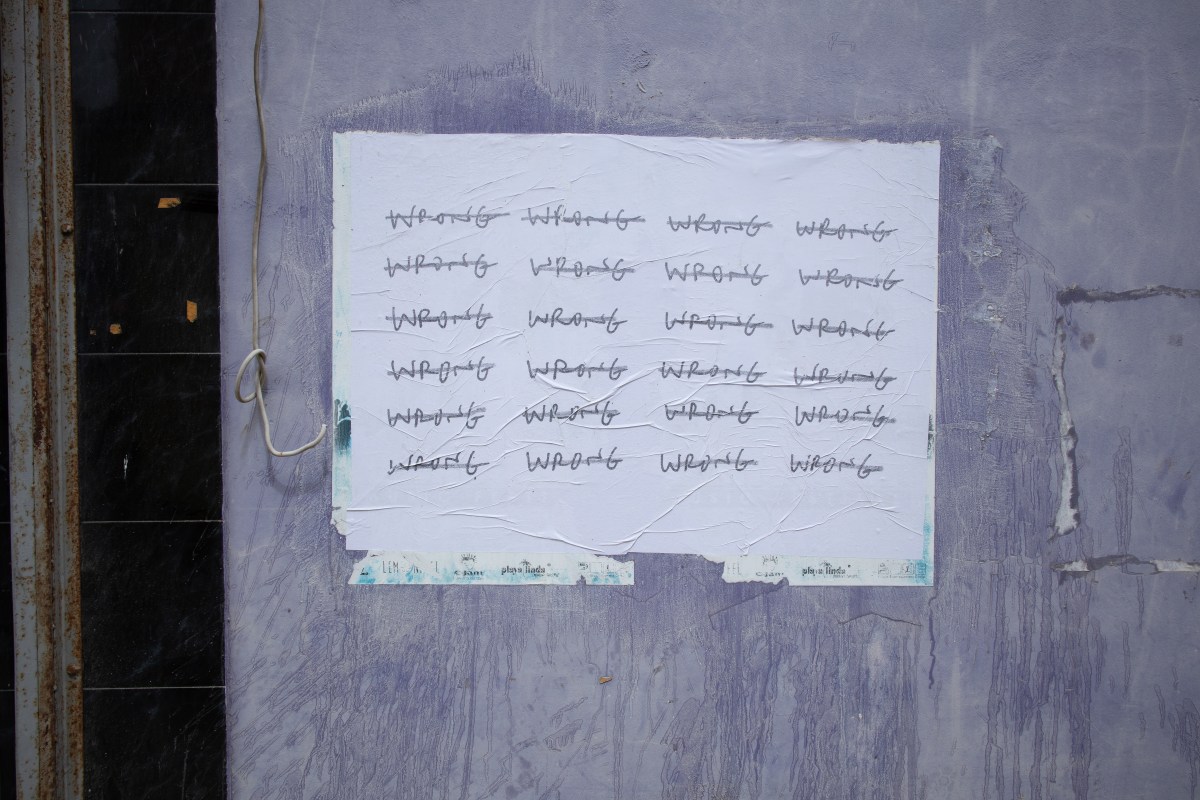 WRONG WRONG WRONG WRONG
WRONG WRONG WRONG WRONG
WRONG WRONG WRONG WRONG
WRONG WRONG WRONG WRONG
WRONG WRONG WRONG WRONG
WRONG WRONG WRONG WRONG
playa linda playa linda